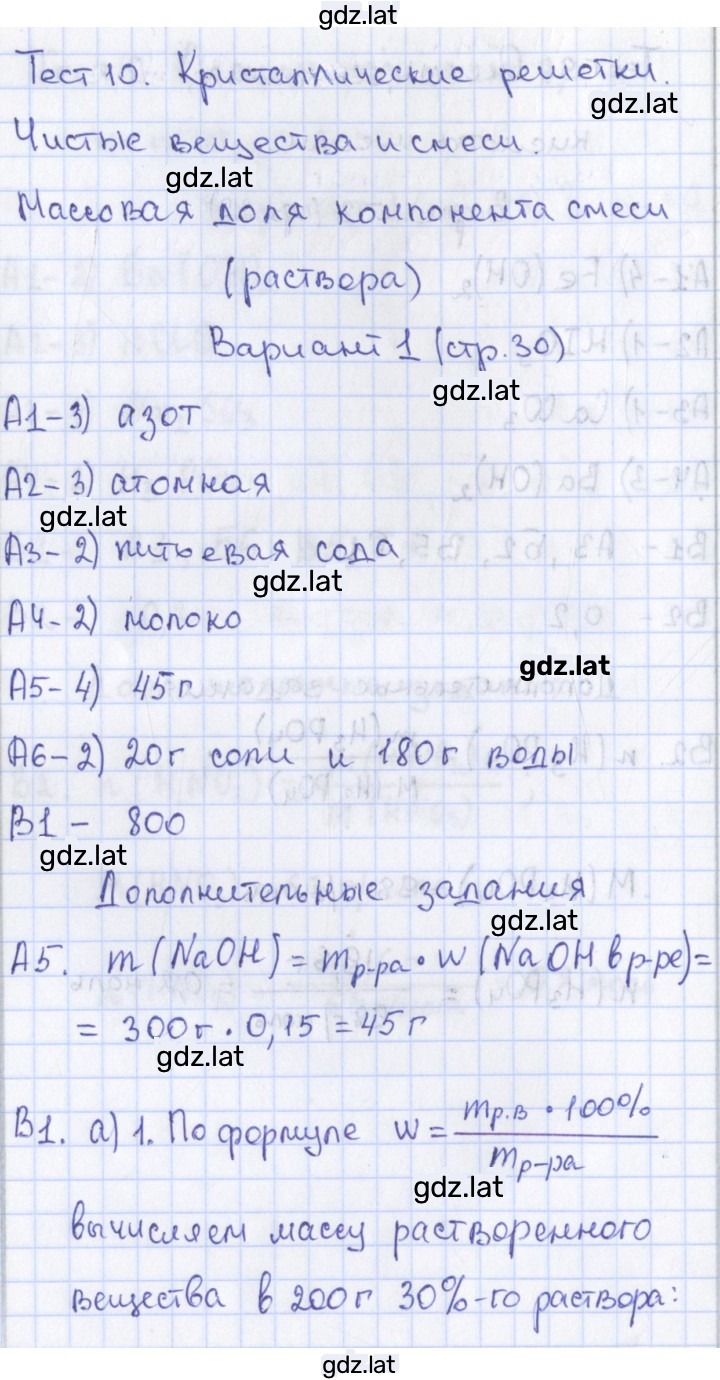 gdz.lat
Тест 10. Кристаллические решетки.
gdz.lat
Чистые вещества и смеси.
gdz.lat
Массовая доля компонента смеси
(раствора)
Вариант 1 (стр.30)
gdz.lat
А1-3) азот
А2-3) атомная
gdz.lat
А3-2) питьевая сода
gdz.lat
А4-2) молоко
gdz.lat
А5-4) 45г
А6-2) 20г соли и 180г воды
В1 - 800
gdz.lat
Дополнительные задания
gdz.lat
А5. m(NaOH) = m р-ра · w (NaOH в р-ре) =
= 300г · 0,15 = 45 г
gdz.lat
В1. а) 1. По формуле w = m р.в · 100% / m р-ра
gdz.lat
вычисляем массу растворенного
вещества в 200г 30%-го раствора:
gdz.lat